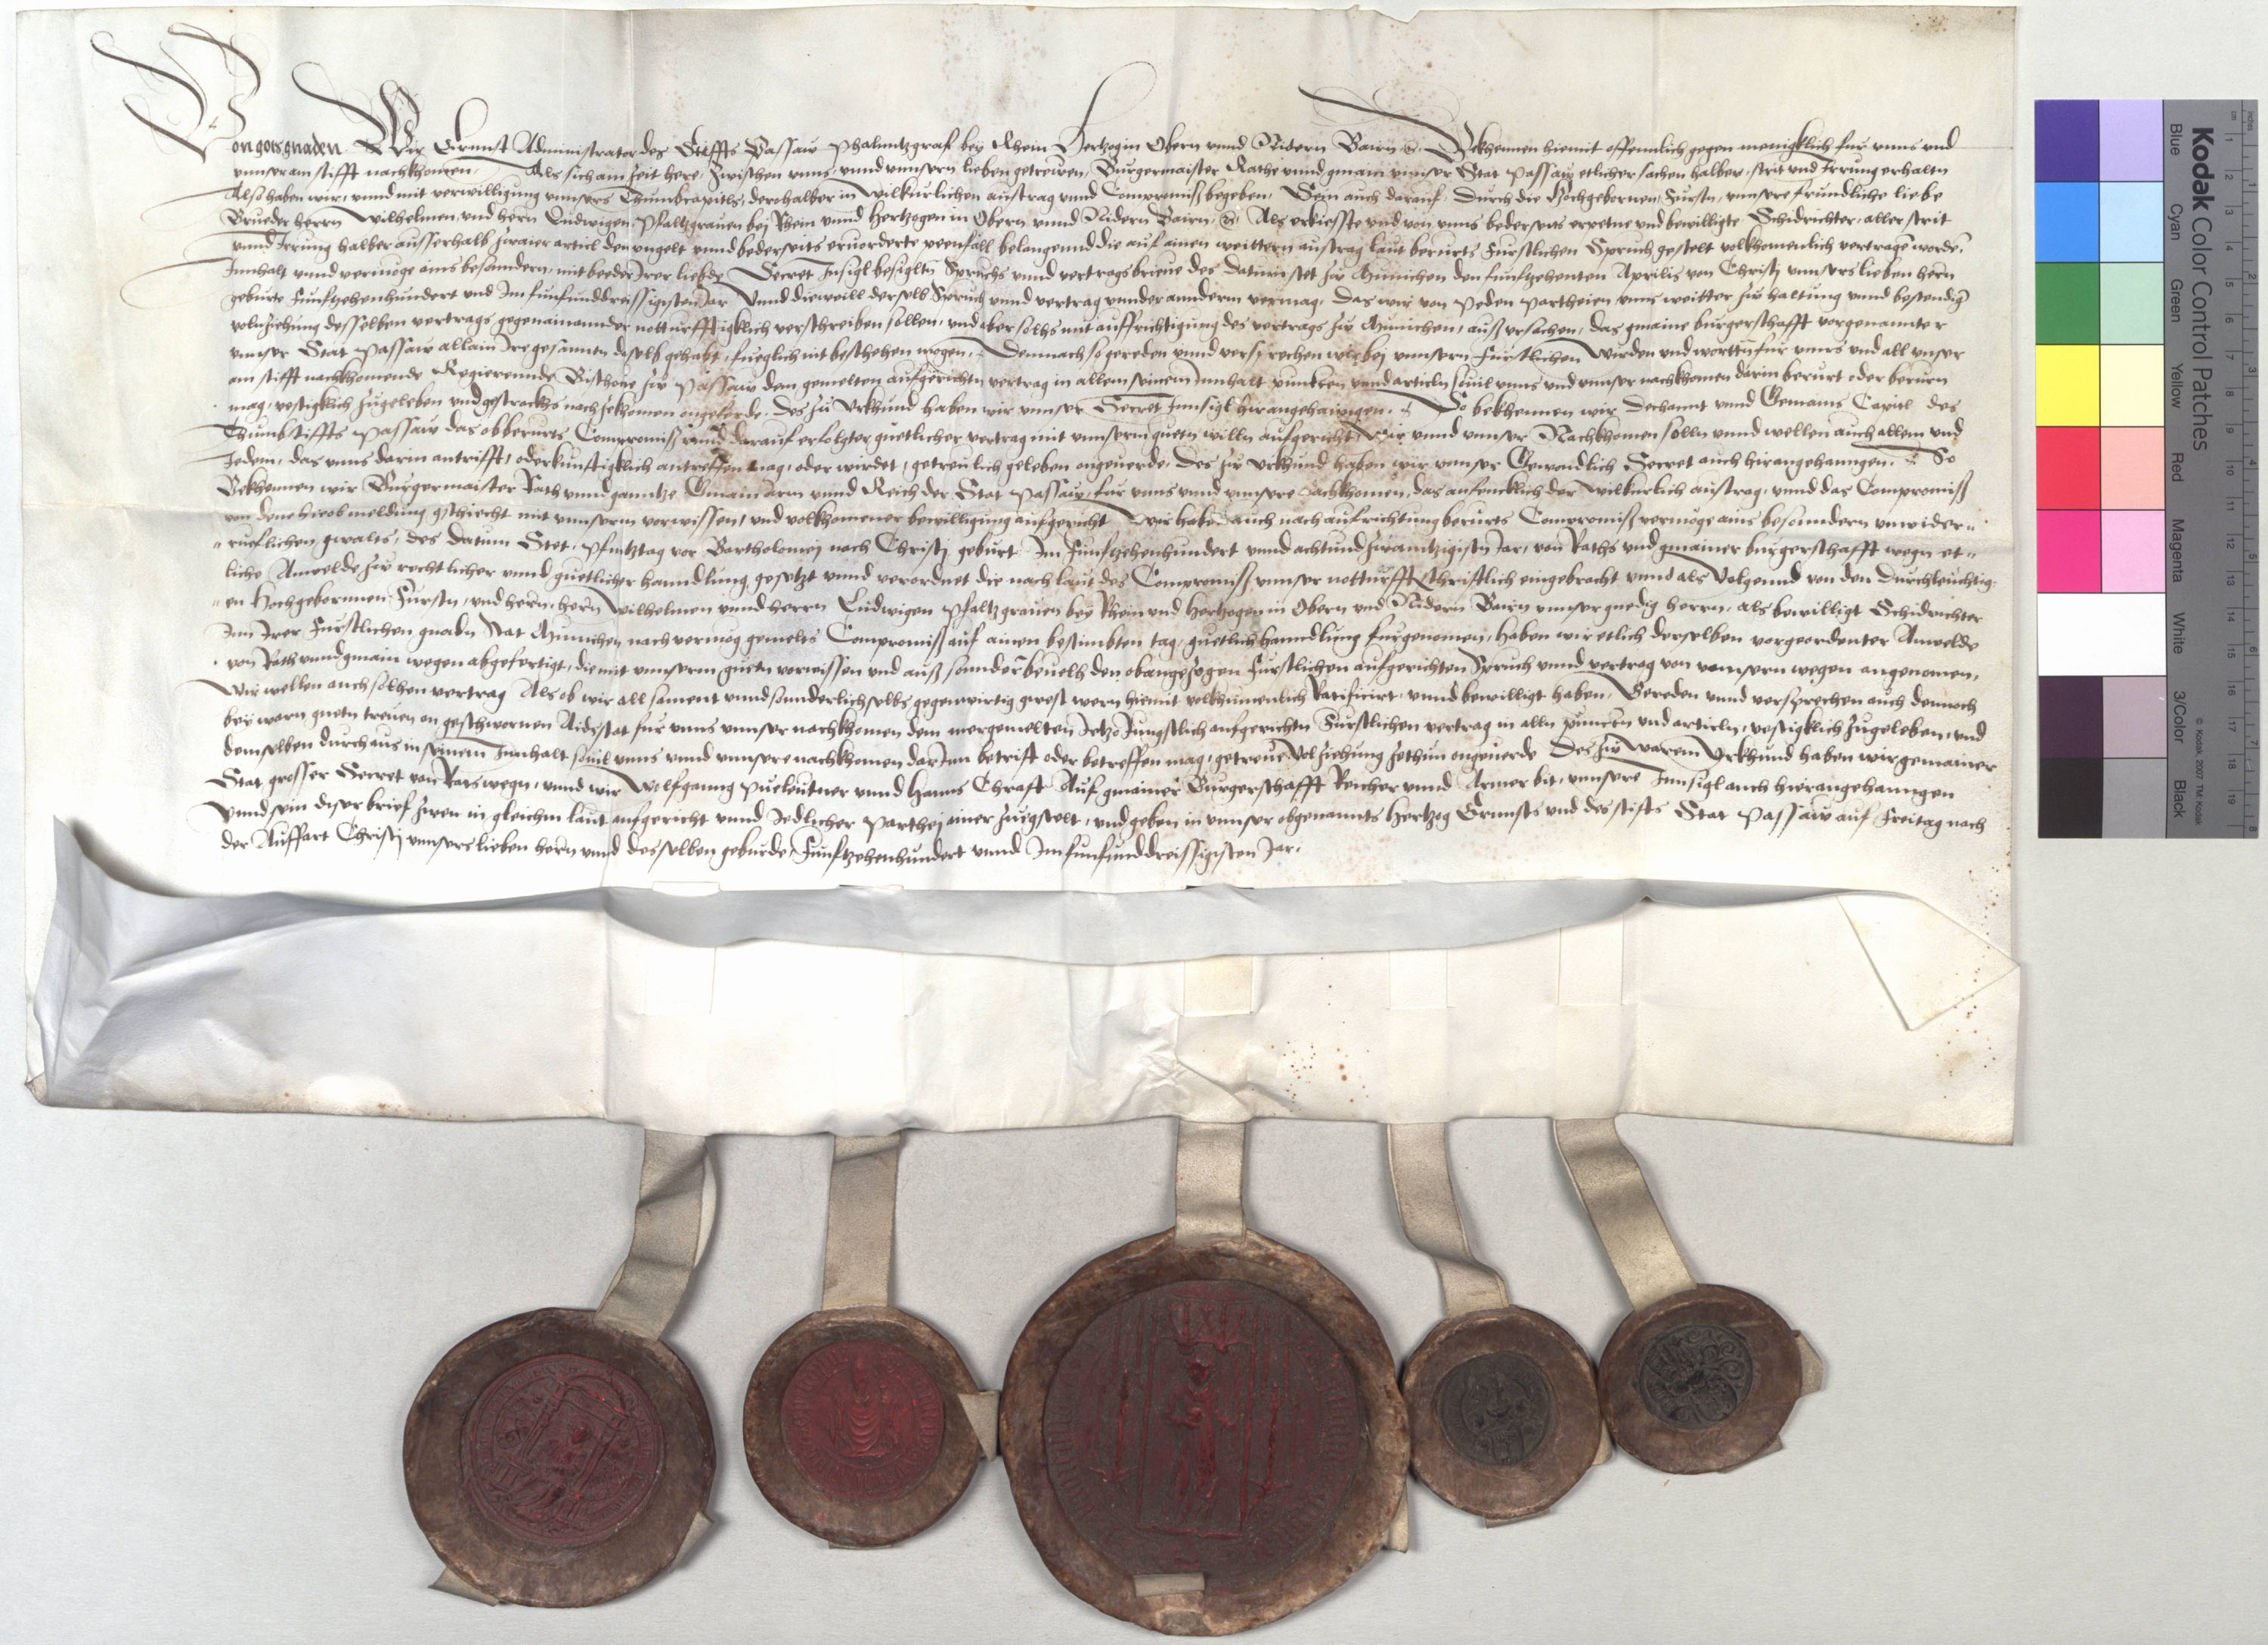 Von gots gnaden Wir Ernnst Administrator des Stiffts Passaw Phalnntzgraf bey Rhein Hertzog in Obern vnnd Nidern Bairn &c. Bekhennen hiemit offennlich gegen menigklich fur vnns vnd
vnnser am stifft nachkhomen, Als sich am Zeit here, Zwischen vnns, vnnd vnnsern lieben getrewen, Burgermaister Rathe vnnd gmain vnnser Stat passaw etlicher sachen halber, strit vnd Irrung erhaltn
Also haben wir, vnnd mit verwilligung vnnsers Thumbcapitls, derohalber in wilkurlichen austrag vnnd Compromiß begeben, Sein auch darauf, Durch die Hochgebornen Furstn, vnnsere frundliche liebe
Brueder herrn Wilhelmen, vnd hern Ludwigen Pfaltzgrauen bej Rhein vnnd Hertzogen in Obern vnnd Nidern Bairn, &c. Als erkießte vnd von vnns bederseits erpetne vnd bewilligte Schidrichter, aller strit
vnnd Irrung halber ausserhalb zwaier articl den vngelt vnnd bederseits eruorderte peenfäll belangennd die auf ainen weittern austrag laut berurts Furstlichen Spruch gestelt volkhomenlich vertragen worden,
Innhalt vnnd vermöge ains besonndern, mit beeder Irer liebde Secret Insigl besigltn Spruchs vnnd vertragsbrieue des datum stet zw Munichen den funfzehenten Aprilis von Christj vnnsers lieben hern
geburte Funfzehenhundert vnd Im funfunddreissigisten Jar Vnnd dieweill derselb Spruch vnnd vertrag vnnder annderm vermag, Das wir von peden partheien vnns weitter zw haltung vnnd bestendig
volnziehung desselben vertrags gegenainannder notturfftigklich verschreiben sollen, vnd aber solhs mit auffrichtigung des vertrags zw Munichen, auß vrsachen, das gmaine burgerschafft vorgenannter
vnnser Stat Passaw allain Ire gesannten daselb gehabt, fueglich nit beschehen mogen, Demnach so gereden vnnd versprechen wir bej vnnsern Furstlichen Wirden vnd worttn fur vnns vnd all vnser
am stifft nachkhomende Regierennde Bischoue zw Passaw dem gemelten aufgerichtn vertrag in allem seinem Innhalt puncten vnnd articln souil vnns vnd vnnser nachkhomen darin berurt oder berurn
mag, vestigklich zugeleben vnd gestrackhs nachzekhomen ongeferde. Des zu Vrkhund haben wir vnnser Secret Innsigl hirangehanngen. So bekhennen wir Dechannt vnnd Gemains Capitl des
Thumbstiffts Passaw das obberurts Compromiß vnnd darauf erfolgter guetlicher vertrag mit vnnserm guetn willn aufgericht, Wir vnnd vnnser Nachkhomen solln vnnd wellen auch allem vnd
Jedem, das vnns darin antrifft, oder kunftigklich antreffen mag, oder wirdet, getreulich geleben ongeuerde, Des zw Vrkhund haben wir vnnser Gewondlich Secret auch hirangehanngen. So
Bekhennen wir Burgermaister Rath vnnd ganntze Gmain Arm vnnd Reich der Stat Passaw, fur vnns vnnd vnnsere Nachkhomen, das anfencklich der wilkurlich austrag, vnnd das Compromiß
von dene hieob meldung geschiecht mit vnnserm vorwissen, vnd volkhomener bewilligung aufgericht Wir haben auch nach aufrichtung berurts Compromiß vermöge ains besonndern vnwider-
rueflichen gwalts, des datum Stet, Pfintztag vor Bartholomej nach Christj geburt Im Funfzehenhundert vnnd achtundzwaintzigistn Jar, von Raths vnd gmainer burgerschafft wegn et-
liche Anwelde zw rechtlicher vnnd guetlicher hanndlung gesetzt vnnd verordnet die nach laut des Compromiß vnnser notturfft schriftlich eingebracht vnnd als Volgennd von den Durchleuchtig-
en Hochgebornnen Furstn, vnd hern, hern Wilhelmen vnnd herrn Ludwigen Pfaltzgrauen bey Rhein vnd Hertzogen in Obern vnd Nidern Bairn vnnser gnedig herrn, als bewilligt Schidrichter
Inn Irer Furstlichen gnadn Stat Munichen nach vermög gemelts Compromiß auf ainen bestimbten tag, guetlich hanndlung furgenomen, haben wir etlich derselben vorgeordenter Anwelde
von Rath vnnd gmain wegen abgefertigt, die mit vnnserm guetn vorwissen vnd auß sonnder beuelh den obangezogen Furstlichen aufgerichten Spruch vnnd vertrag von vnnsern wegen angenomen,
Wir wellen auch solhen vertrag Als ob wir all sament vnnd sonnderlich selbs gegenwirtig gwest wern hiemit volkhumenlich Ratificirt, vnnd bewilligt haben, Gereden vnnd versprechen auch demnoch
bey warn guetn treuen on geschwornen Aidsstat fur vnns vnnser nachkhomen dem mergemelten Jetzo Jungstlich aufgerichtn Furstlichen vertrag in alln puncten vnd articln, vestigklich zugeleben, vnd
demselben durchaus in seinem Innhalt souil vnns vnnd vnnsere nachkhomen darInn betrift oder betreffen mag, getreue Volziehung zethun ongeuerde Des zw warem Vrkhund haben wir gemainer
Stat grosser Secret von Rats wegn, vnnd wir Wolfganng pueleutner vnnd Hanns Chraft Auf gmainer Burgerschafft Reicher vnnd Armer bit, vnnsere Innsigl auch hirangehanngen
Vnnd sein diser brief zwen in gleichm laut aufgericht vnnd Jedlicher parthej ainer zugstelt, vnd geben in vnnser obgenannts Hertzog Ernnsts vnd des stifts Stat Passaw auf Freitag nach
der Auffart Christj vnnsers lieben hern vnnd desselben geburde Funftzehenhundert vnnd Im funfunddreissigisten Jar.
Kodak Color Control Patches
Blue Cyan Green Yellow Red Magenta White 3/Color Black
© Kodak, 2007 TM: Kodak
cm 1 2 3 4 5 6 7 8 9 10 11 12 13 14 15 16 17 18 19
inches 1 2 3 4 5 6 7 8